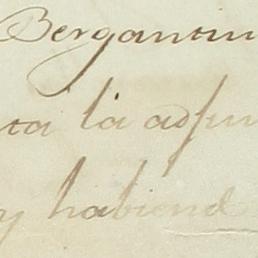 Bergantin
ta la adjun
y habiend